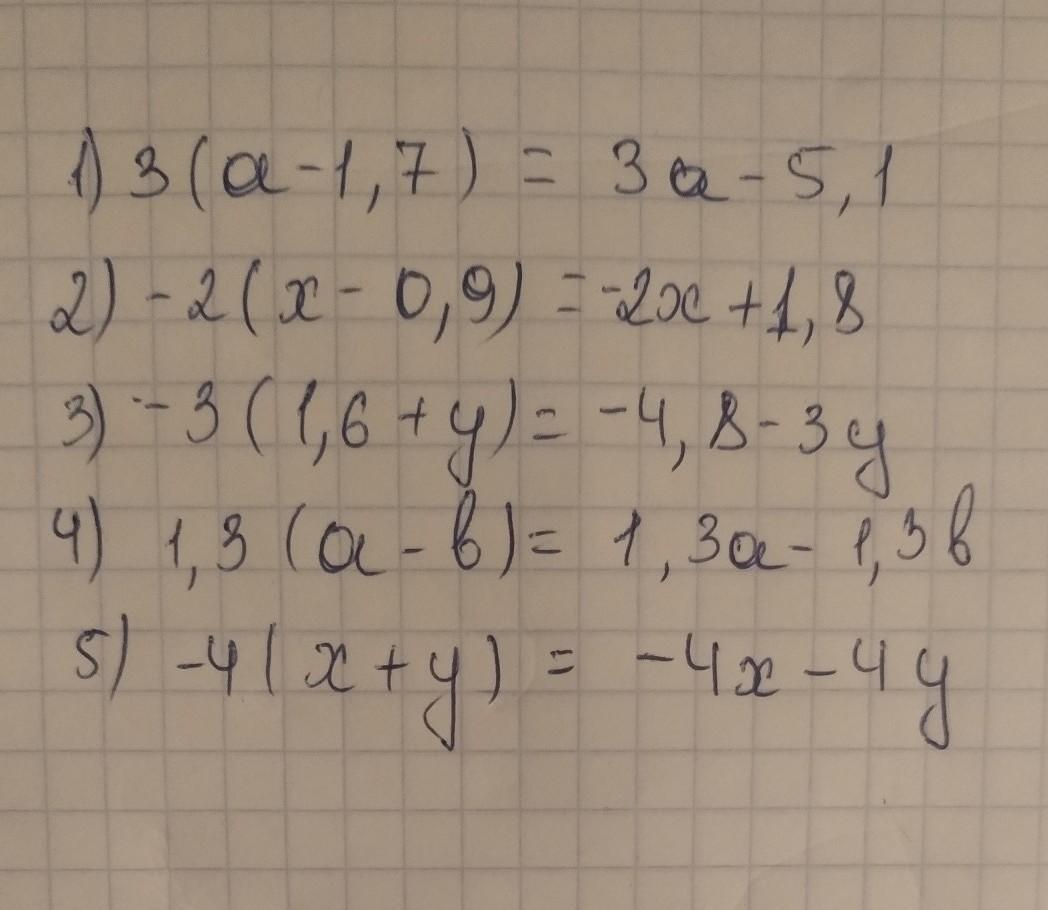 1) 3(a-1,7) = 3a-5,1
2) -2(x-0,9) =-2x+1,8
3) -3(1,6+y)= -4,8-3y
4) 1,3(a-b)= 1,3a-1,3b
5) -4(x+y) = -4x-4y